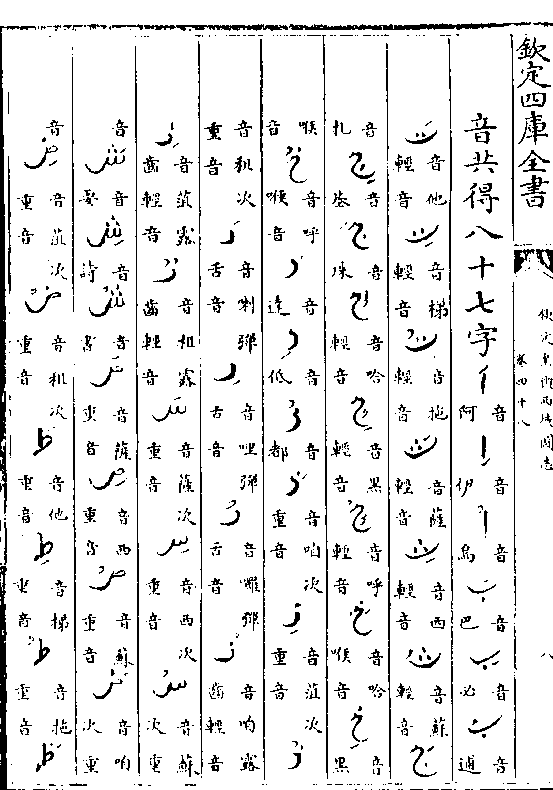 欽定四庫全書
欽定皇輿西域圖志 卷四十八
八
音共得八十七字 اَ 音阿 اِ 音伊 اُ 音烏 بَ 音巴 بِ 音必 بُ 音逋
تَ 音他輕音 تِ 音梯輕音 تُ 音拖輕音 ثَ 音薩輕音 ثِ 音西輕音 ثُ 音蘇輕音 جَ
音扎 جِ 音 جُ 音珠 حَ 音哈輕音 حِ 音黑輕音 حُ 音呼輕音 خَ 音哈喉音 خِ 音黑
喉音 خُ 音呼喉音 دَ 音達 دِ 音低 دُ 音都 ذَ 音咱次重音 ذِ 音茲次重音 ذُ
音租次重音 رَ 音喇彈舌音 رِ 音哩彈舌音 رُ 音嚕彈舌音 زَ 音咱露齒輕音
زِ 音茲露齒輕音 زُ 音租露齒輕音 سَ 音薩次重音 سِ 音西次重音 سُ 音蘇次重
音 شَ 音 شِ 音詩 شُ 音書 صَ 音薩重音 صِ 音西重音 صُ 音蘇重音 ضَ 音咱次重
音 ضِ 音茲次重音 ضُ 音租次重音 طَ 音他重音 طِ 音梯重音 طُ 音拖重音 ظَ